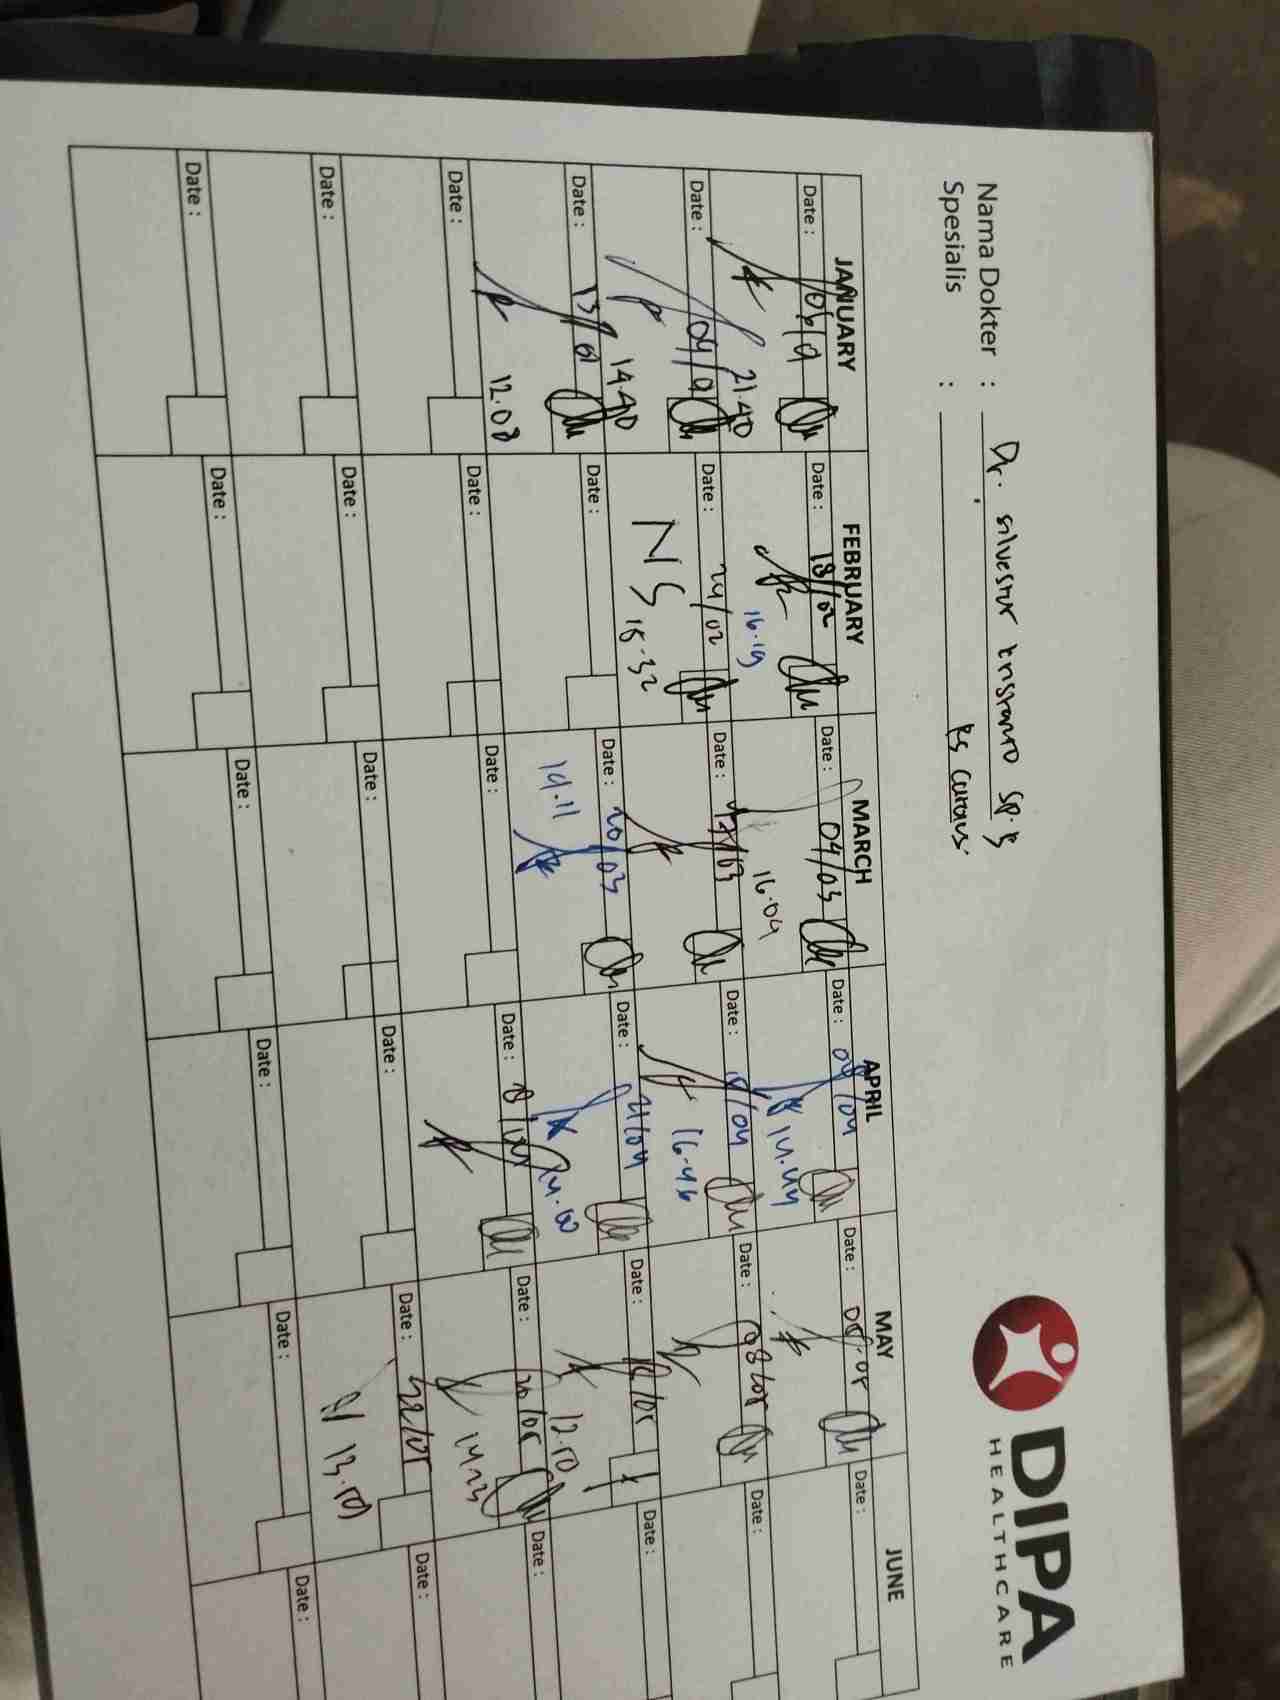 DIPA
HEALTHCARE
Nama Dokter : Dr. silvester
Spesialis : RS
JANUARY FEBRUARY MARCH APRIL MAY JUNE
Date : 06/01 Date : 18/02 Date : 04/03 Date : 08/04 Date : Date :
21.40 16.19 16.04 14.44
Date : 09/01 Date : 24/02 Date : Date : Date : 08/05 Date :
14.40 NS 15.32 16.46
Date : 13/01 Date : Date : 20/03 Date : 21/04 Date : Date :
12.08 14.11 14.00 12.10
Date : Date : Date : Date : Date : 20/05 Date :
14.23
Date : Date : Date : Date : Date : 22/05 Date :
Date : Date : Date : Date : Date : Date :